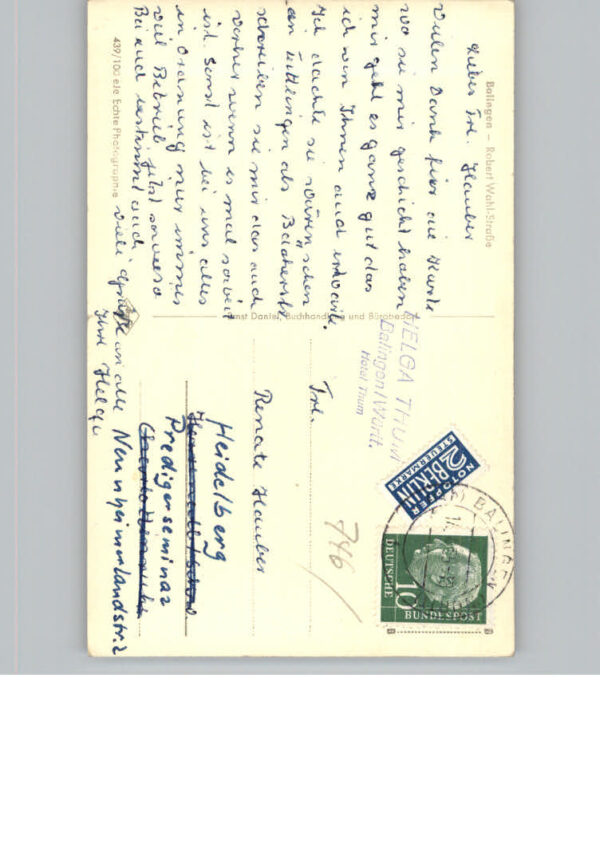 Balingen – Robert Wahl-Straße
Liebes Frl. Hauber
Vielen Dank für die Karte
wo sie mir geschickt haben
mir geht es ganz gut das
ich von Ihnen auch
Ich dachte sie wären schon
in Tuttlingen als
schreiben sie mir das auch
vorher wenn es mal soweit
ist. Sonst ist bei uns alles
in Ordnung nur immer
viel Betrieb jetzt sowieso
Bei euch bestimmt auch
viele Grüße an alle
Ihre Helga
439/100 eJe Echte Photographie
Ernst Daniel, Buchhandlung und Bürobedarf
HELGA THUM
Balingen/Württ.
Hotel Thum
Frl.
Renate Hauber
Heidelberg
Predigerseminar
Neuenheimerlandstr. 2
746
NOTOPFER
2 BERLIN
STEUERMARKE
BALINGEN
DEUTSCHE
10
BUNDESPOST